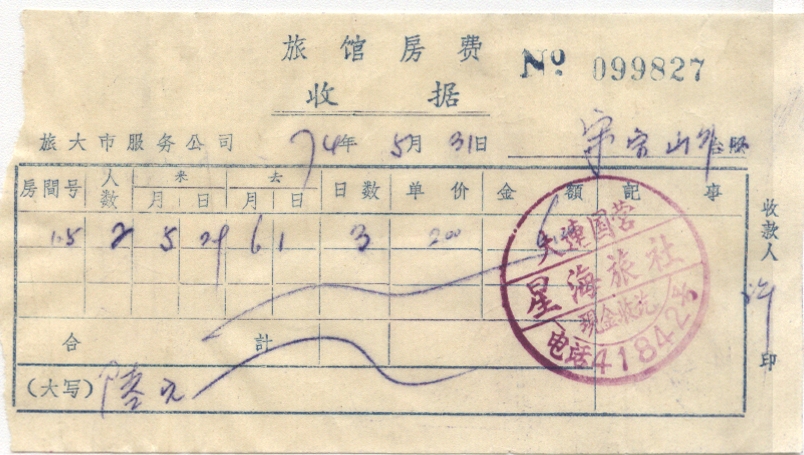 旅馆房费 № 099827
收据
旅大市服务公司 74年 5月 31日
房間号 人数 来 月 日 去 月 日 日数 单价 金額 記事
15 2 5 29 6 1 3 2.00 6
合計
(大写) 陸元
收款人 印
大連国营
星海旅社
現金收讫
电話41842